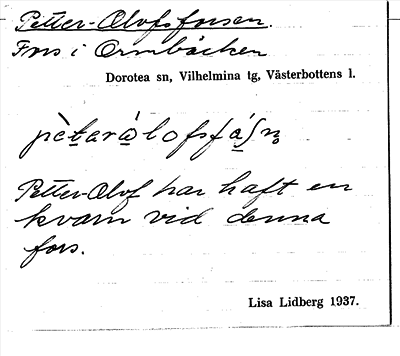 Petter-Olofsforsen.
Fors i Ormbäcken
Dorotea sn, Vilhelmina tg, Västerbottens l.
Petter-Olof har haft en
kvarn vid denna
fors.
Lisa Lidberg 1937.